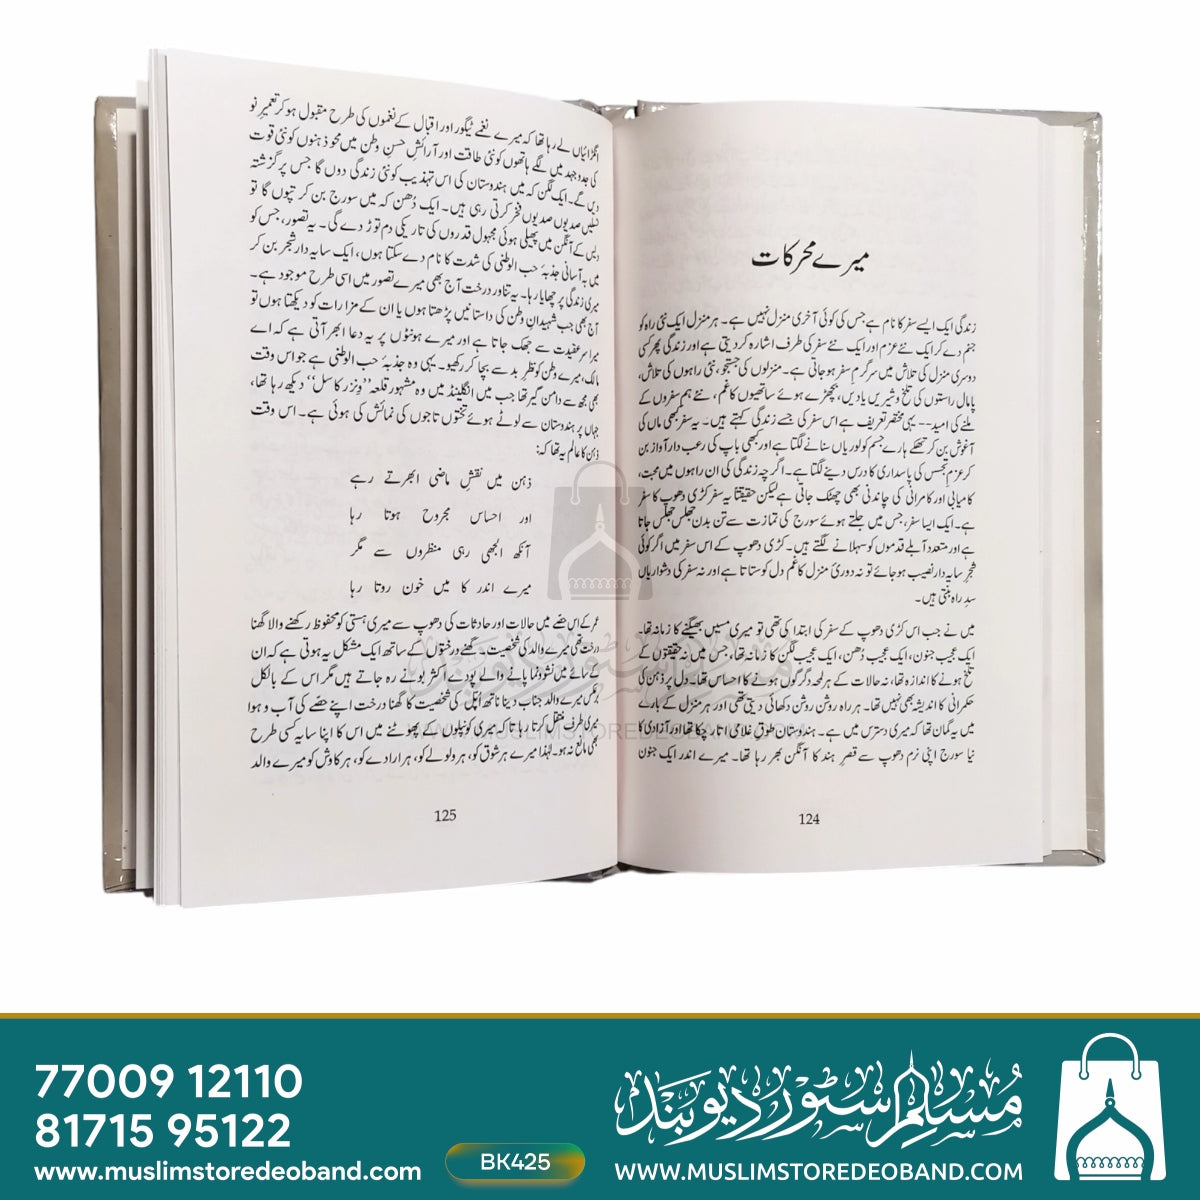 میرے محرکات
زندگی ایک ایسے سفر کا نام ہے جس کی کوئی آخری منزل نہیں ہے۔ ہر منزل ایک نئی راہ کو
جنم دے کر ایک نئے عزم اور ایک نئے سفر کی طرف اشارہ کر دیتی ہے اور زندگی پھر کسی
دوسری منزل کی تلاش میں سرگرمِ سفر ہو جاتی ہے۔ منزلوں کی جستجو، نئی راہوں کی تلاش،
پامال راستوں کی تلخ و شیریں یادیں، بچھڑے ہوئے ساتھیوں کا غم، نئے ہم سفروں کے
ملنے کی امید -- یہی مختصر تعریف ہے اس سفر کی جسے زندگی کہتے ہیں۔ یہ سفر کبھی ماں کی
آغوش بن کر تھکے ہارے جسم کو لوریاں سنانے لگتا ہے اور کبھی باپ کی رعب دار آواز بن
کر عزم و تجسس کی پاسداری کا درس دینے لگتا ہے۔ اگرچہ زندگی کی ان راہوں میں محبت،
کامیابی اور کامرانی کی چاندنی بھی چھٹک جاتی ہے لیکن حقیقتاً یہ سفر کڑی دھوپ کا سفر
ہے۔ ایک ایسا سفر، جس میں جلتے ہوئے سورج کی تمازت سے تن بدن جھلس جھلس جاتا
ہے اور متعدد آبلے قدموں کو سہلانے لگتے ہیں۔ کڑی دھوپ کے اس سفر میں اگر کوئی
شجرِ سایہ دار نصیب ہو جائے تو نہ دوریٔ منزل کا غم دل کو ستاتا ہے اور نہ سفر کی دشواریاں
سدِ راہ بنتی ہیں۔
میں نے جب اس کڑی دھوپ کے سفر کی ابتدا کی تھی تو میری مسیں بھیگنے کا زمانہ تھا۔
ایک عجیب جنون، ایک عجیب دُھن، ایک عجیب لگن کا زمانہ تھا، جس میں نہ حقیقتوں کے
تلخ ہونے کا اندازہ تھا، نہ حالات کے ہر لمحہ دگرگوں ہونے کا احساس تھا۔ دل پر ذہن کی
حکمرانی کا اندیشہ بھی نہیں تھا۔ ہر راہ روشن روشن دکھائی دیتی تھی اور ہر منزل کے بارے
میں یہ گمان تھا کہ میری دسترس میں ہے۔ ہندوستان طوقِ غلامی اتار چکا تھا اور آزادی کا
نیا سورج اپنی نرم دھوپ سے قصرِ ہند کا آنگن بھر رہا تھا۔ میرے اندر ایک جنون
124
انگڑائیاں لے رہا تھا کہ میرے نغمے ٹیگور اور اقبال کے نغموں کی طرح مقبول ہو کر تعمیرِ نو
کی جدوجہد میں لگے ہاتھوں کو نئی طاقت اور آرائشِ حسنِ وطن میں محو ذہنوں کو نئی قوت
دیں گے۔ ایک لگن کہ میں ہندوستان کی اس تہذیب کو نئی زندگی دوں گا جس پر گزشتہ
نسلیں صدیوں صدیوں فخر کرتی رہی ہیں۔ ایک دُھن کہ میں سورج بن کر تپوں گا تو
دیس کے آنگن میں پھیلی ہوئی مجہول قدروں کی تاریکی دم توڑ دے گی۔ یہ تصور، جس کو
میں بہ آسانی جذبۂ حب الوطنی کی شدت کا نام دے سکتا ہوں، ایک سایہ دار شجر بن کر
میری زندگی پر چھایا رہا۔ یہ تناور درخت آج بھی میرے تصور میں اسی طرح موجود ہے۔
آج بھی جب شہیدانِ وطن کی داستانیں پڑھتا ہوں یا ان کے مزارات کو دیکھتا ہوں تو
میرا سر عقیدت سے جھک جاتا ہے اور میرے ہونٹوں پر یہ دعا ابھر آتی ہے کہ اے
مالک، میرے وطن کو نظرِ بد سے بچا کر رکھیو۔ یہی وہ جذبۂ حب الوطنی ہے جو اس وقت
بھی مجھ سے دامن گیر تھا جب میں انگلینڈ میں وہ مشہور قلعہ ”ونڈزر کاسل“ دیکھ رہا تھا،
جہاں پر ہندوستان سے لوٹے ہوئے تختوں تاجوں کی نمائش کی ہوئی ہے۔ اس وقت
ذہن کا عالم یہ تھا کہ:
ذہن میں نقشِ ماضی ابھرتے رہے
اور احساس مجروح ہوتا رہا
آنکھ الجھی رہی منظروں سے مگر
میرے اندر کا میں خون روتا رہا
عمر کے اس حصے میں حالات اور حادثات کی دھوپ سے میری ہستی کو محفوظ رکھنے والا گھنا
درخت تھی میرے والد کی شخصیت۔ گھنے درختوں کے ساتھ ایک مشکل یہ ہوتی ہے کہ ان
کے سائے میں نشوونما پانے والے پودے اکثر بونے رہ جاتے ہیں مگر اس کے بالکل
برعکس میرے والد جناب دینا ناتھ اُپّل کی شخصیت کا گھنا درخت اپنے حصے کی آب و ہوا
میری طرف منتقل کرتا رہا تا کہ میری کونپلوں کے پھوٹنے میں اس کا اپنا سایہ کسی طرح
بھی مانع نہ ہو۔ لہٰذا میرے ہر شوق کو، ہر ولولے کو، ہر ارادے کو، ہر کاوش کو میرے والد
125
مسلم سٹور دیوبند
WWW.MUSLIMSTOREDEOBAND.COM
77009 12110
81715 95122
www.muslimstoredeoband.com
BK425
مسلم سٹور دیوبند
WWW.MUSLIMSTOREDEOBAND.COM